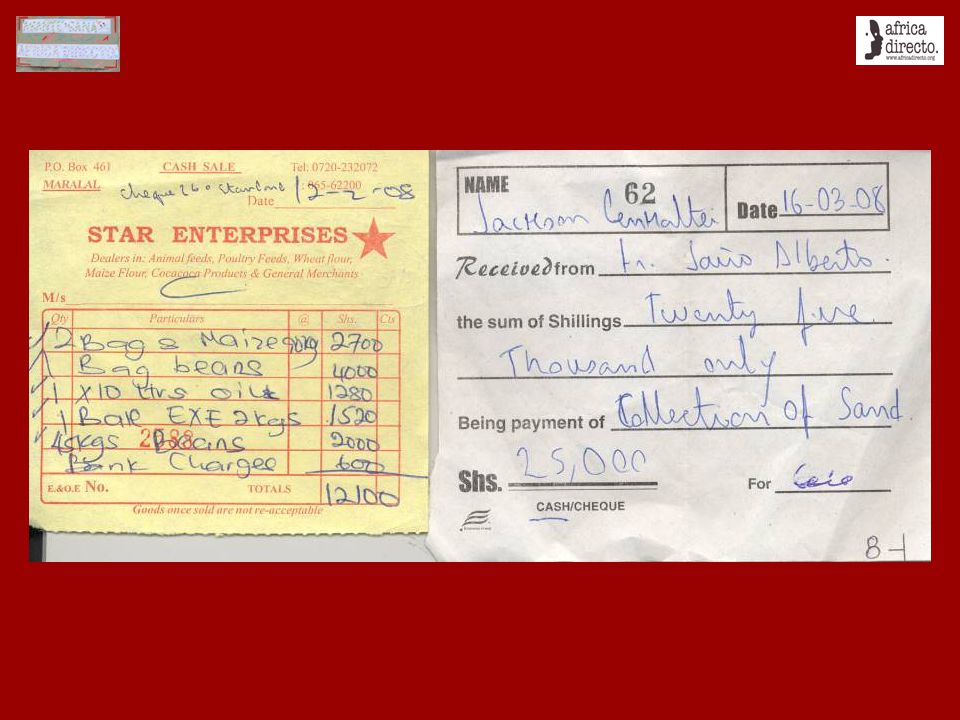 africa
directo.
www.africadirecto.org
P.O. Box 461 CASH SALE Tel: 0720-232072
MARALAL : 065-62200
cheque 260 Stanland
Date 12-2-08
STAR ENTERPRISES
Dealers in: Animal feeds, Poultry Feeds, Wheat flour,
Maize Flour, Cocacoca Products & General Merchants
M/s
Qty Particulars @ Shs. Cts
2 Bags Maize 90kg 2700
1 Bag beans 4000
1 X10 ltrs oil 1280
1 Bale EXE 2kgs 1520
kgs Beans 2000
Bank Charges 600
E.&O.E No. TOTALS 12100
Goods once sold are not re-acceptable
NAME 62
Jackson Date 16-03-08
Received from fr. Jairo Alberto.
the sum of Shillings Twenty five
Thousand only
Being payment of Collection of Sand.
Shs. 25,000 For
CASH/CHEQUE
8-1